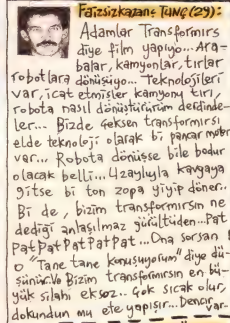 Faizsizkazanç TUNÇ(29):
Adamlar Transformirs
diye film yapıyo... Ara-
balar, kamyonlar, tırlar
robotlara dönüşüyo... Teknolojileri
var, icat etmişler kamyonu tırı,
robota nasıl dönüştürürüm derdinde-
ler... Bizde Çeksen transformırsı
elde teknoloji olarak bi pancar motor
var... Robota dönüşse bile bodur
olacak belli... Uzaylıyla kavgaya
gitse bi ton zopa yiyip döner..
Bi de, bizim transformırsın ne
dediği anlaşılmaz gürültüden...Pat
PatPatPatPatPat...Ona sorsan
o "Tane tane konuşuyorum" diye dü-
şünür. Bizim transformırsın en bü-
yük silahı eksoz.. Çok sıcak olur,
dokundun mu ete yapışır... bencir
var-